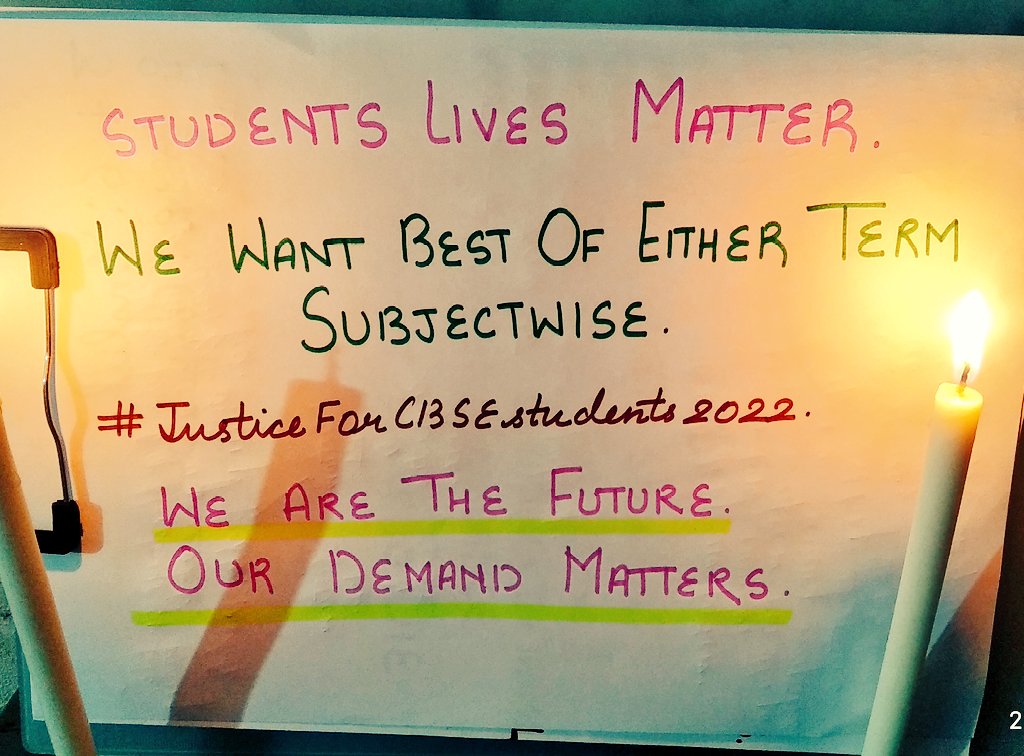 STUDENTS LIVES MATTER.
WE WANT BEST OF EITHER TERM
SUBJECTWISE.
# JusticeForCBSEstudents2022.
WE ARE THE FUTURE.
OUR DEMAND MATTERS.
2